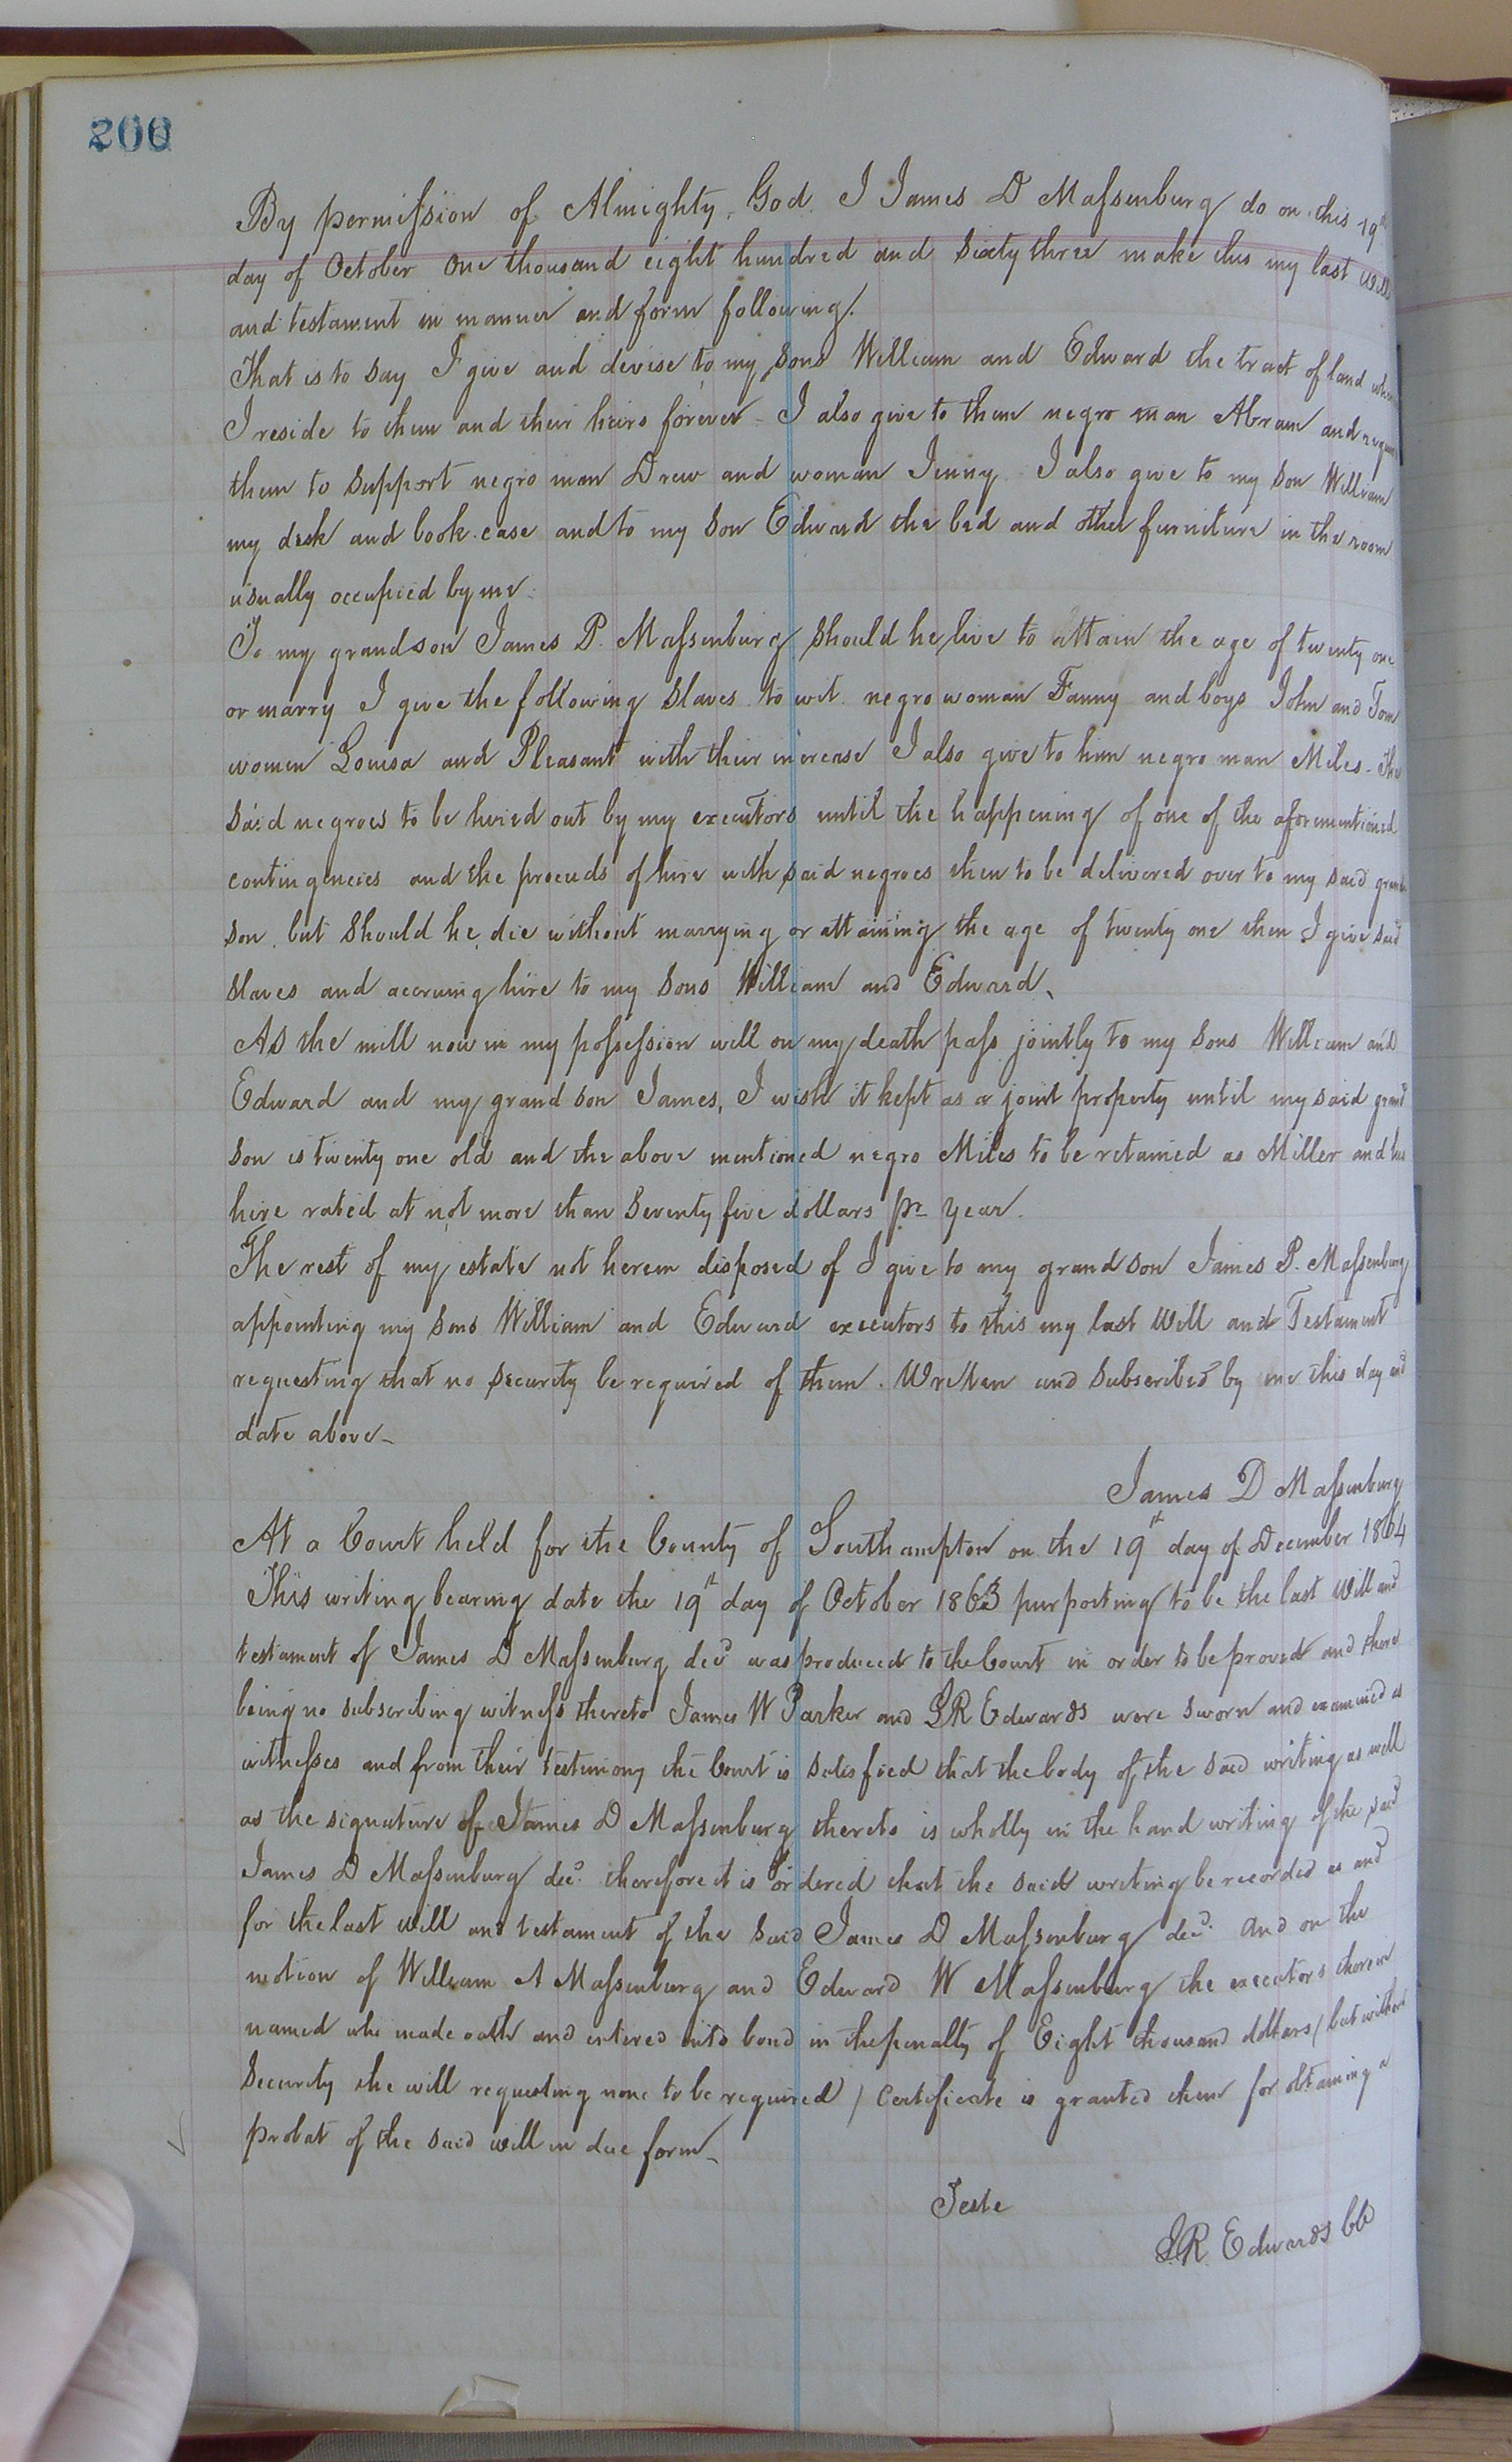 200
By permission of Almighty God I James D Massenburg do on this 19th
day of October One thousand eight hundred and sixty three make this my last Will
and testament in manner and form following.
That is to say I give and devise to my sons William and Edward the tract of land
I reside to them and their heirs forever - I also give to them negro man Abram and
them to support negro man Drew and woman Jenny. I also give to my son William
my desk and book case and to my son Edward the bed and other furniture in the room
usually occupied by me.
To my grandson James P. Massenburg should he live to attain the age of twenty one
or marry I give the following slaves to wit negro woman Fanny and boys John and Tom
women Louisa and Pleasant with their increase I also give to him negro man Miles - The
said negroes to be hired out by my executors until the happening of one of the aforementioned
contingencies and the proceeds of hire with said negroes then to be delivered over to my said grand
son, but should he die without marrying or attaining the age of twenty one then I give said
slaves and accruing hire to my sons William and Edward,
As the mill now in my possession will on my death pass jointly to my sons William and
Edward and my grand son James, I wish it kept as a joint property until my said grand
son is twenty one old and the above mentioned negro Miles to be retained as Miller and his
hire rated at not more than Seventy five dollars pr year.
The rest of my estate not herein disposed of I give to my grand son James P. Massenburg
appointing my sons William and Edward executors to this my last Will and Testament
requesting that no security be required of them. Written and subscribed by me this day and
date above -
James D Massenburg
At a Court held for the County of Southampton on the 19th day of December 1864
This writing bearing date the 19th day of October 1863 purporting to be the last Will and
testament of James D Massenburg decd was produced to the Court in order to be proved and there
being no subscribing witness thereto James W Parker and LR Edwards were sworn and examined as
witnesses and from their testimony the Court is satisfied that the body of the said writing as well
as the signature of James D Massenburg thereto is wholly in the hand writing of the said
James D Massenburg decd. therefore it is ordered that the said writing be recorded as and
for the last will and testament of the said James D Massenburg decd. and on the
motion of William A Massenburg and Edward W Massenburg the executors therein
named who made oath and entered into bond in the penalty of Eight thousand dollars / but without
security the will requesting none to be required / certificate is granted them for obtaining a
probat of the said will in due form -
Teste
LR. Edwards CC